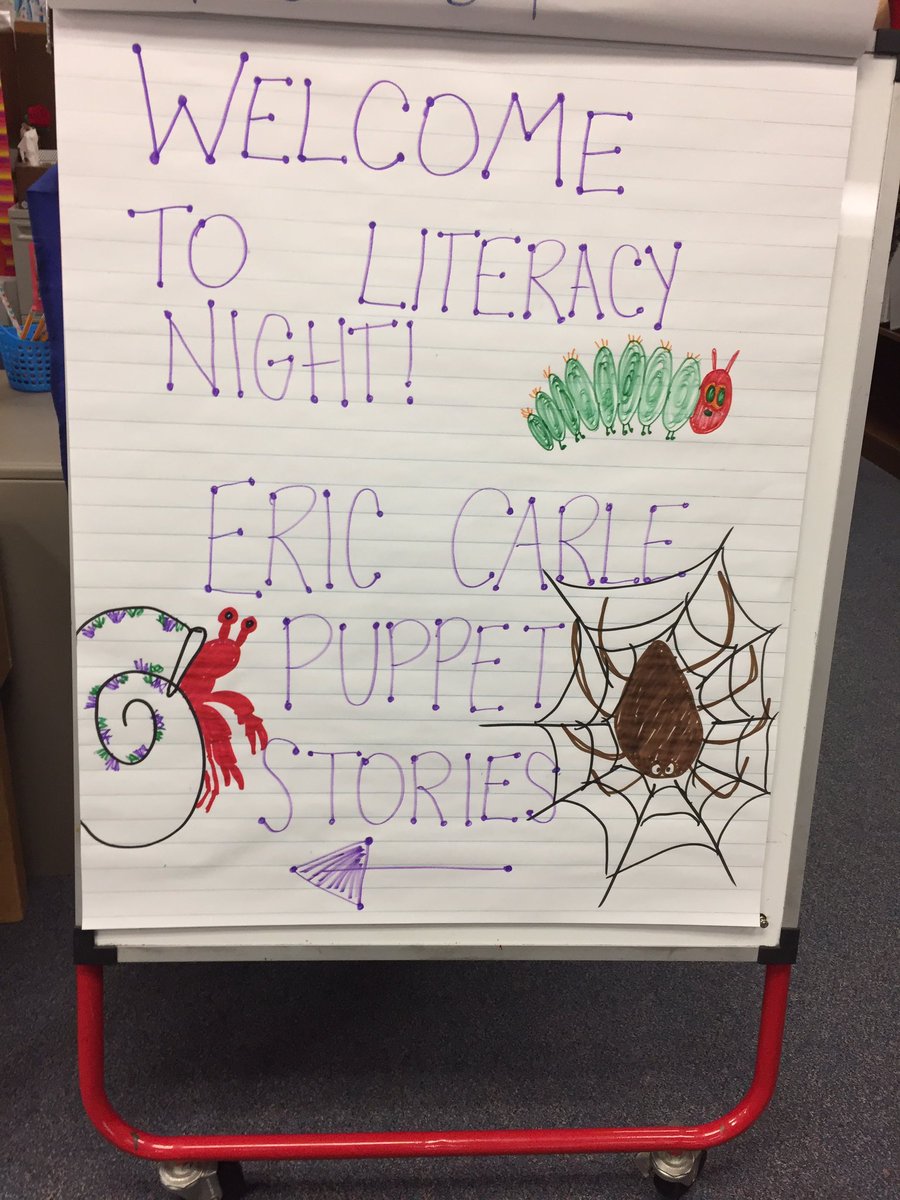 WELCOME
TO LITERACY
NIGHT!
ERIC CARLE
PUPPET
STORIES